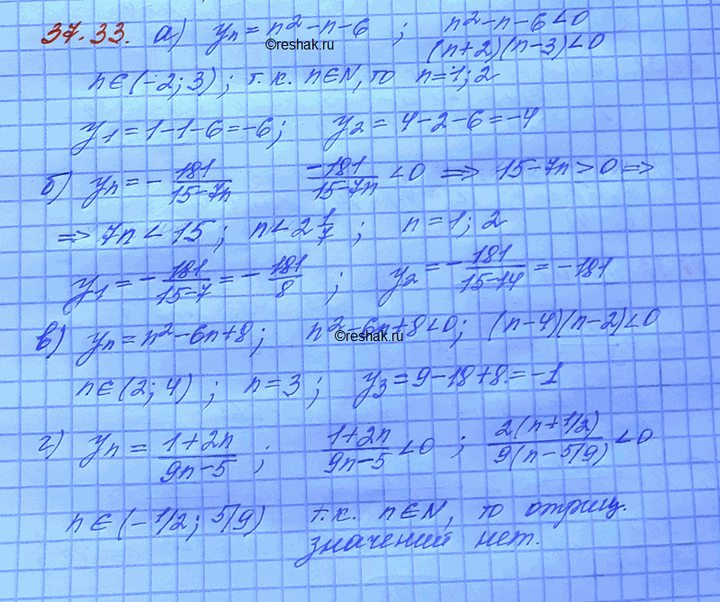 37.33. а) yₙ = n² - n - 6 ; n² - n - 6 < 0
©reshak.ru
(n+2)(n-3) < 0
n ∈ (-2; 3) ; т.к. n ∈ N, то n = 1; 2
y₁ = 1 - 1 - 6 = -6; y₂ = 4 - 2 - 6 = -4
б) yₙ = - 181/(15-7n) -181/(15-7n) < 0 ⇒ 15 - 7n > 0 ⇒
⇒ 7n < 15 ; n < 2 1/7 ; n = 1; 2
y₁ = - 181/(15-7) = - 181/8 ; y₂ = - 181/(15-14) = -181
в) yₙ = n² - 6n + 8 ; n² - 6n + 8 < 0; (n-4)(n-2) < 0
©reshak.ru
n ∈ (2; 4) ; n = 3 ; y₃ = 9 - 18 + 8 = -1
г) yₙ = (1+2n)/(9n-5) ; (1+2n)/(9n-5) < 0 ; 2(n+1/2)/9(n-5/9) < 0
n ∈ (-1/2; 5/9) т.к. n ∈ N, то отриц.
значений нет.